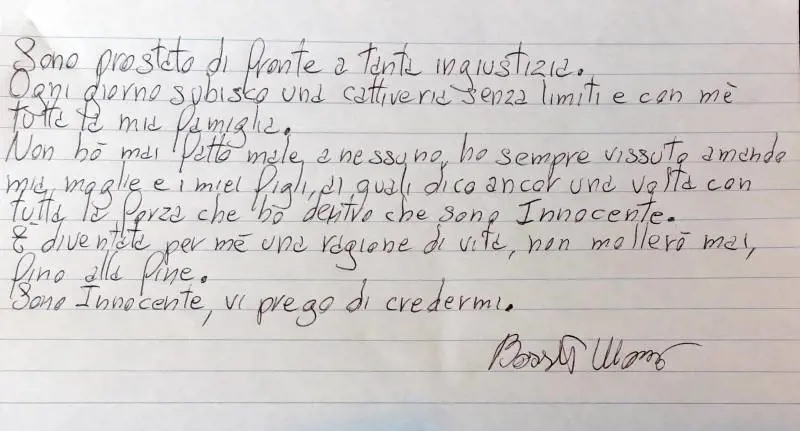 Sono prostato di fronte a tanta ingiustizia.
Ogni giorno subisco una cattiveria senza limiti e con mè
tutta la mia famiglia.
Non hò mai fatto male a nessuno, ho sempre vissuto amando
mia moglie e i miei figli, ai quali dico ancor una volta con
tutta la forza che hò dentro che sono Innocente.
È diventata per mè una ragione di vita, non mollerò mai,
fino alla fine.
Sono Innocente, vi prego di credermi.
Bossetti